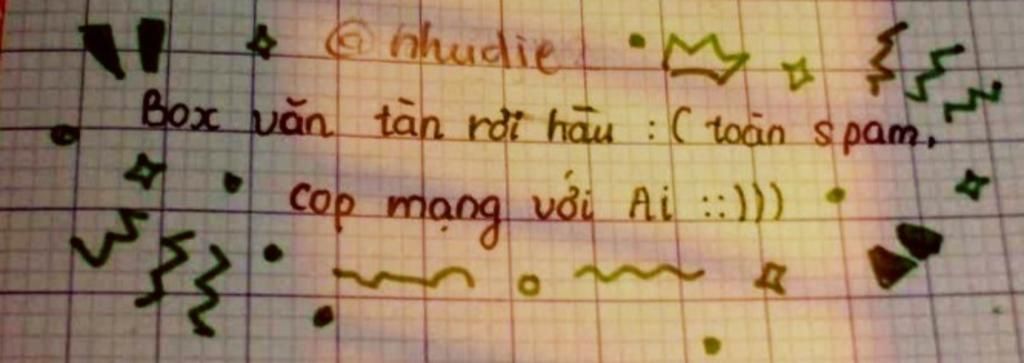 @nhudie
Box văn tàn rời hầu :( toàn spam,
cop mạng với Ai ::)))